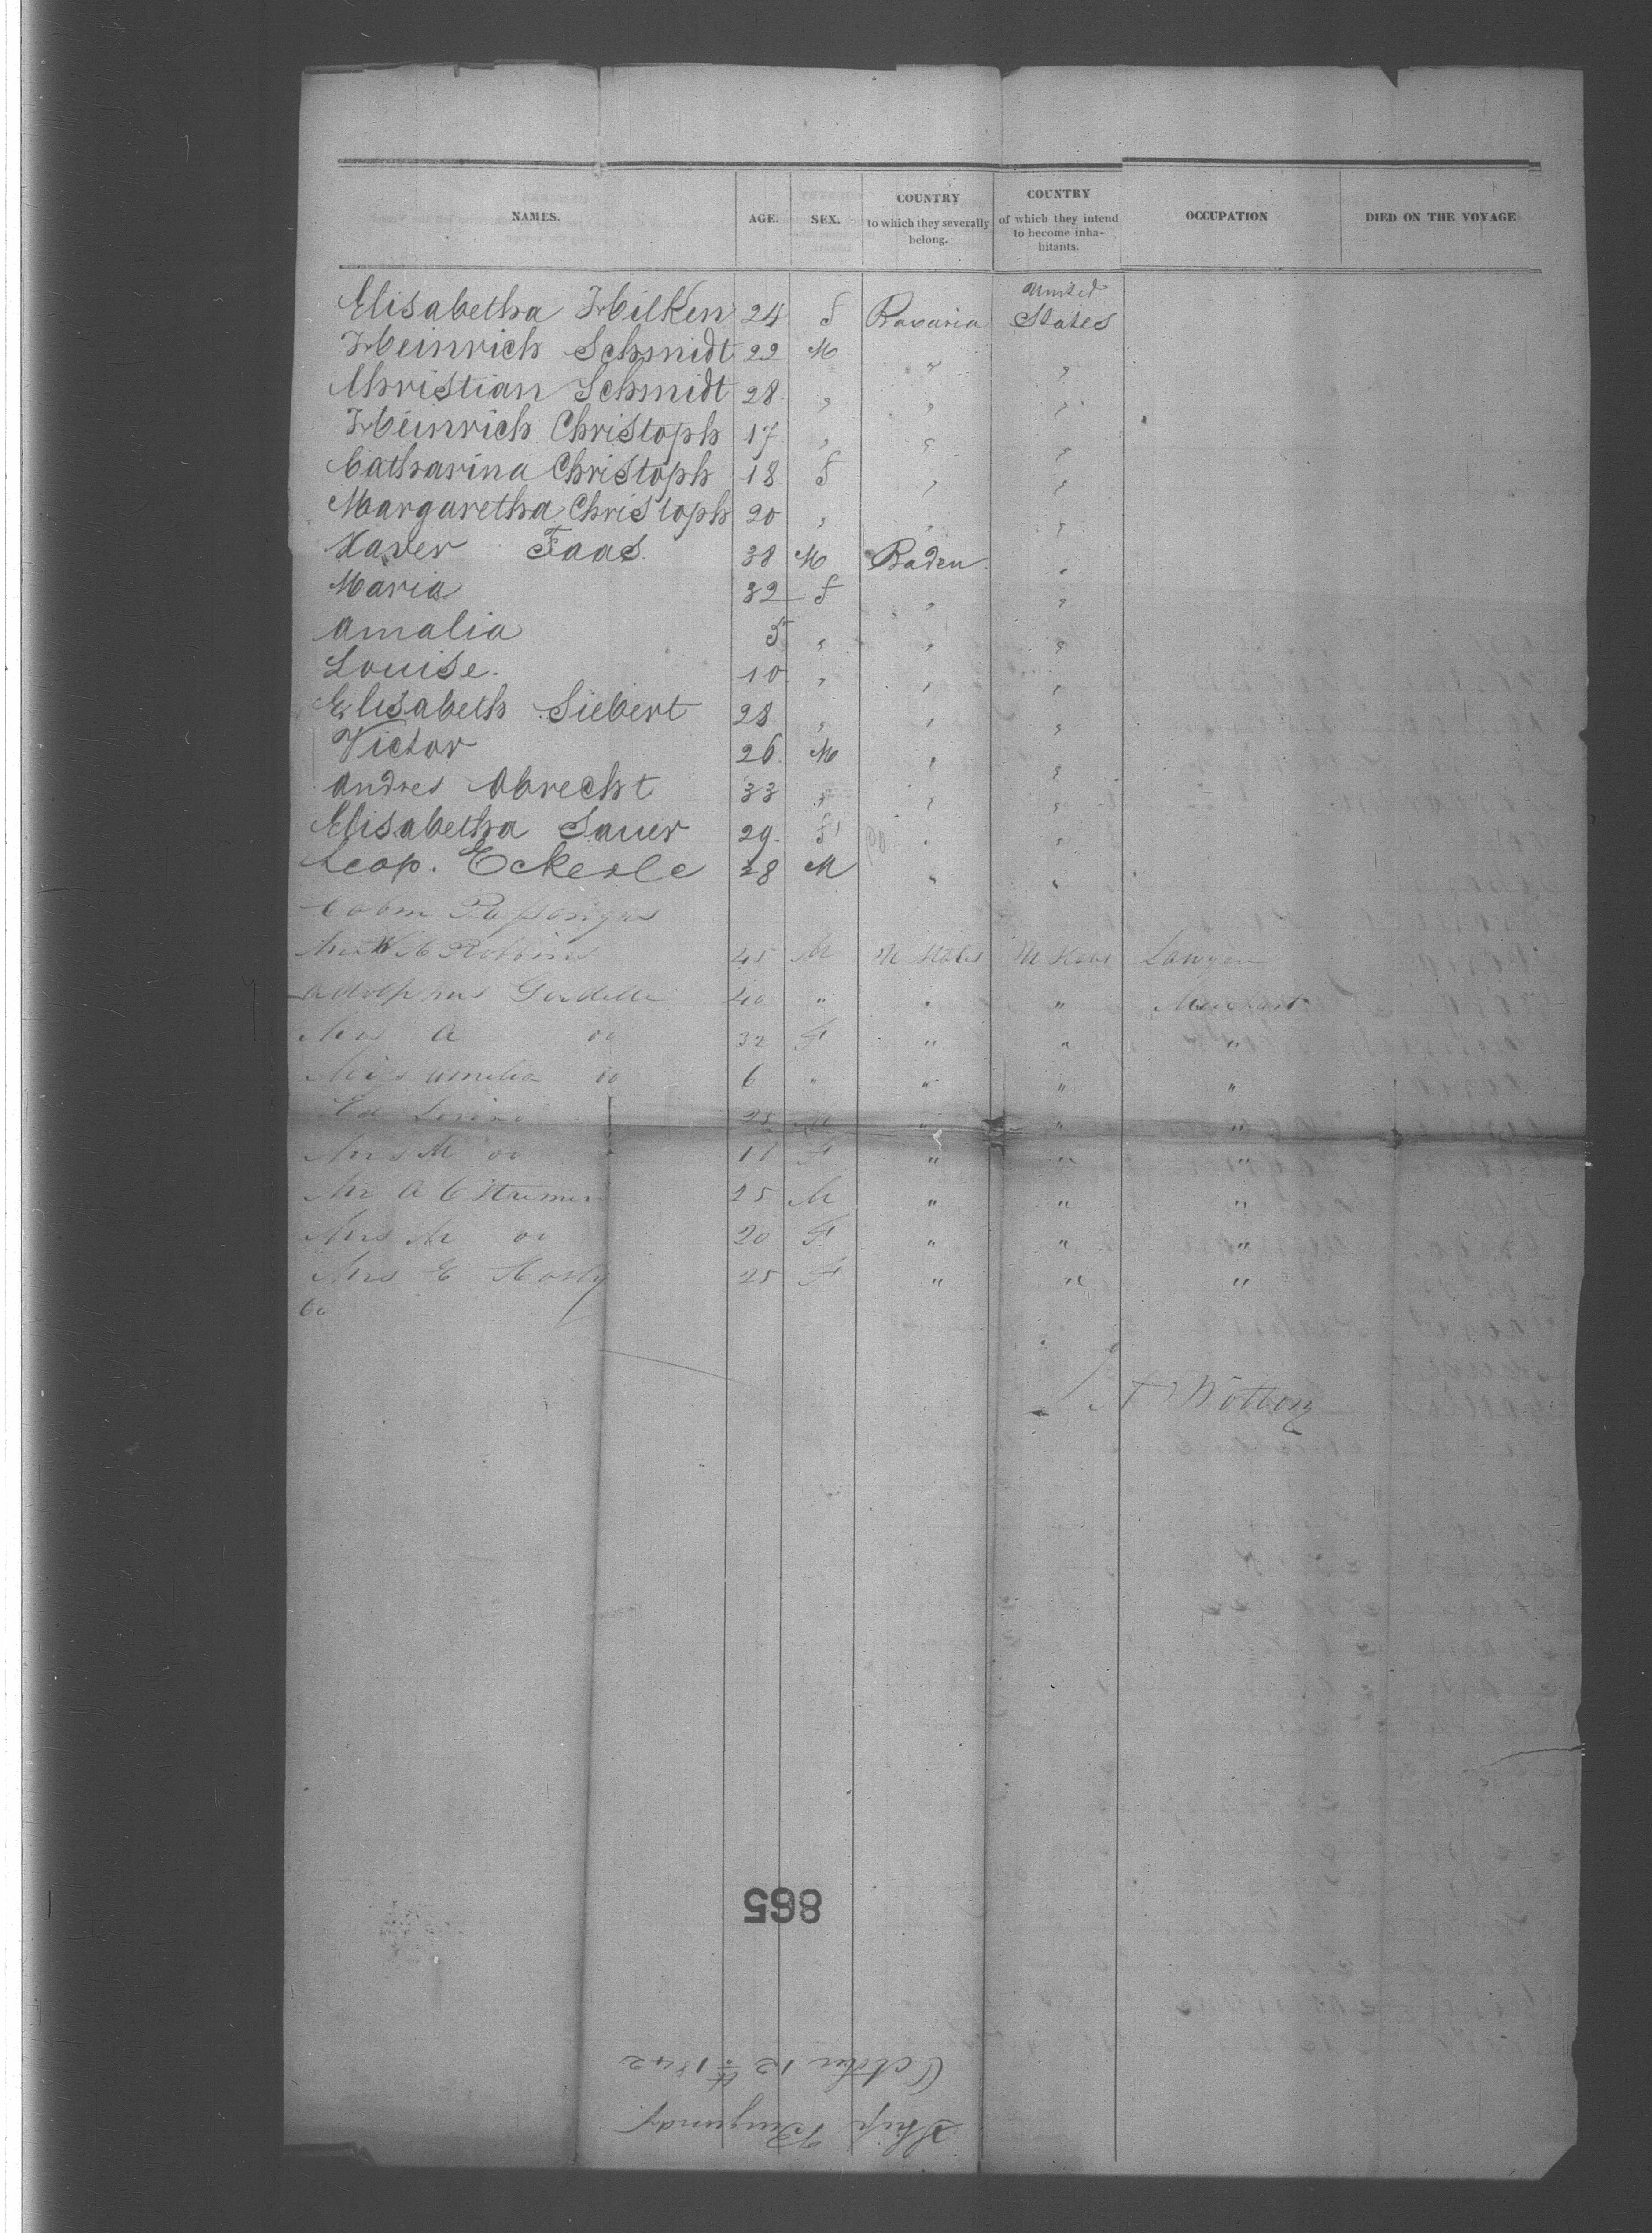 NAMES. AGE. SEX. COUNTRY to which they severally belong. COUNTRY of which they intend to become inha-bitants. OCCUPATION DIED ON THE VOYAGE
Elisabetha Hilken 24 f Bavaria United States
Heinrich Schmidt 22 M " "
Christian Schmidt 28 " " "
Heinrich Christoph 17 " " "
Catharina Christoph 18 f " "
Margaretha Christoph 20 " " "
Xaver Faas 38 M Baden "
Maria 32 f " "
Amalia 5 " " "
Louise. 10 " " "
Elisabeth Siebert 28 " " "
Victor 26 M " "
Andres Abrecht 33 " " "
Elisabetha Sauer 29 f " "
Leop. Eckerle 28 M " "
Cabin Passengers
Robbins 45 M U States U States Lawyer
Adolphus 40 " " " Merchant
Mrs A do 32 F " " "
Miss Amelia do 6 " " " "
25 M " " "
Mrs M do F " " "
Mr A C 25 M " " "
Mrs M do 20 F " " "
Mrs E 25 F " " "
865
Ship Burgundy
October 12th 1842